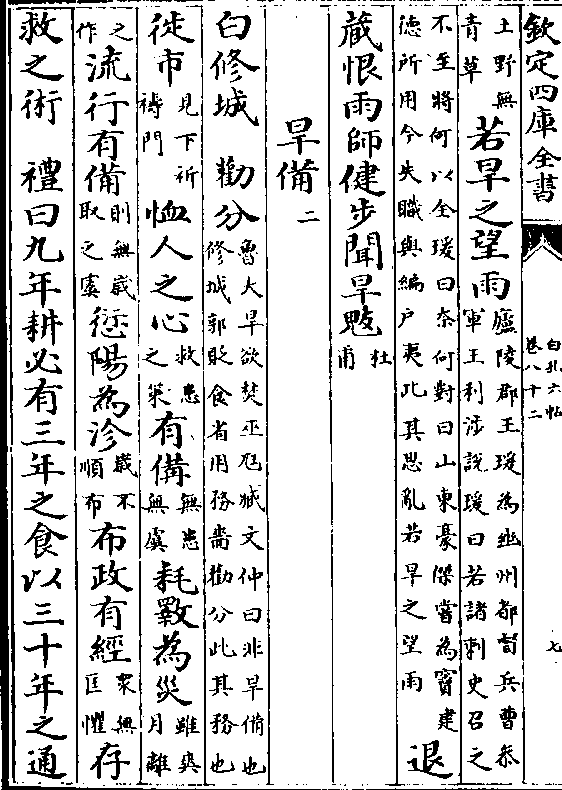 欽定四庫全書
白孔六帖
卷八十二
七
土野無青草若旱之望雨廬陵郡王瑗為幽州都督兵曹叅軍王利涉說瑗曰若諸刺史召之
不至將何以全瑗曰奈何對曰山東豪傑嘗為竇建德所用今失職與編户夷此其思亂若旱之望雨退
藏恨雨師健步聞旱魃杜甫
旱備二
白修城 勸分魯大旱欲焚巫尫臧文仲曰非旱備也修城郭貶食省用務穡勸分此其務也
徙市見下祈禱門恤人之心救患之策有備無患無虞耗斁為災雖與月離
之作流行有備則無歲取之虞愆陽為沴歲不順布布政有經衆無匡懼存
救之術 禮曰九年耕必有三年之食以三十年之通